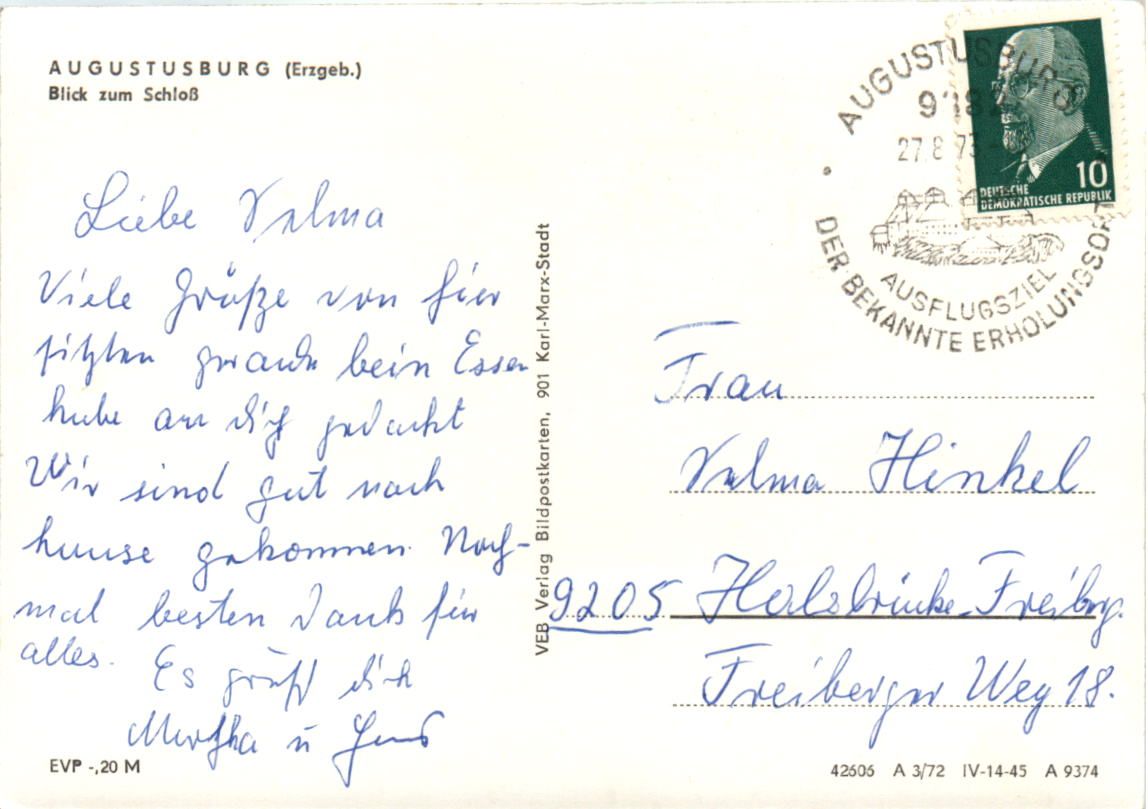 AUGUSTUSBURG (Erzgeb.)
Blick zum Schloß
Liebe Velma
Viele Grüße von hier
sitzten gerade bein Essen
habe an dich gedacht
Wir sind gut nach
hause gekommen. Noch-
mal besten Dank für
alles.
Es grüßt dich
Martha u
EVP -,20 M
VEB Verlag Bildpostkarten, 901 Karl-Marx-Stadt
AUGUSTUSBURG
9382
27.8.73
AUSFLUGSZIEL
DER BEKANNTE ERHOLUNGSORT
10
DEUTSCHE
DEMOKRATISCHE REPUBLIK
Frau
Velma Hinkel
9205 Halsbrücke-Freiberg.
Freiberger Weg 18.
42606 A 3/72 IV-14-45 A 9374